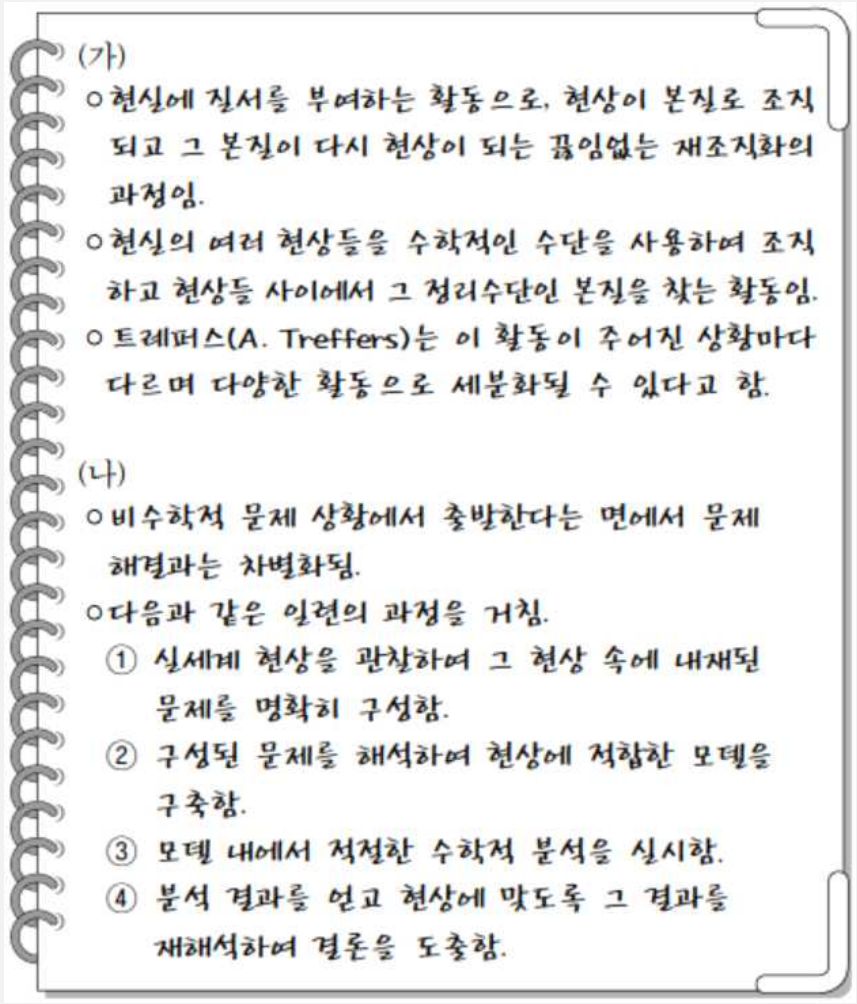 (가)
○ 현실에 질서를 부여하는 활동으로, 현상이 본질로 조직
되고 그 본질이 다시 현상이 되는 끊임없는 재조직화의
과정임.
○ 현실의 여러 현상들을 수학적인 수단을 사용하여 조직
하고 현상들 사이에서 그 정리수단인 본질을 찾는 활동임.
○ 트레퍼스(A. Treffers)는 이 활동이 주어진 상황마다
다르며 다양한 활동으로 세분화될 수 있다고 함.
(나)
○ 비수학적 문제 상황에서 출발한다는 면에서 문제
해결과는 차별화됨.
○ 다음과 같은 일련의 과정을 거침.
① 실세계 현상을 관찰하여 그 현상 속에 내재된
문제를 명확히 구성함.
② 구성된 문제를 해석하여 현상에 적합한 모델을
구축함.
③ 모델 내에서 적절한 수학적 분석을 실시함.
④ 분석 결과를 얻고 현상에 맞도록 그 결과를
재해석하여 결론을 도출함.